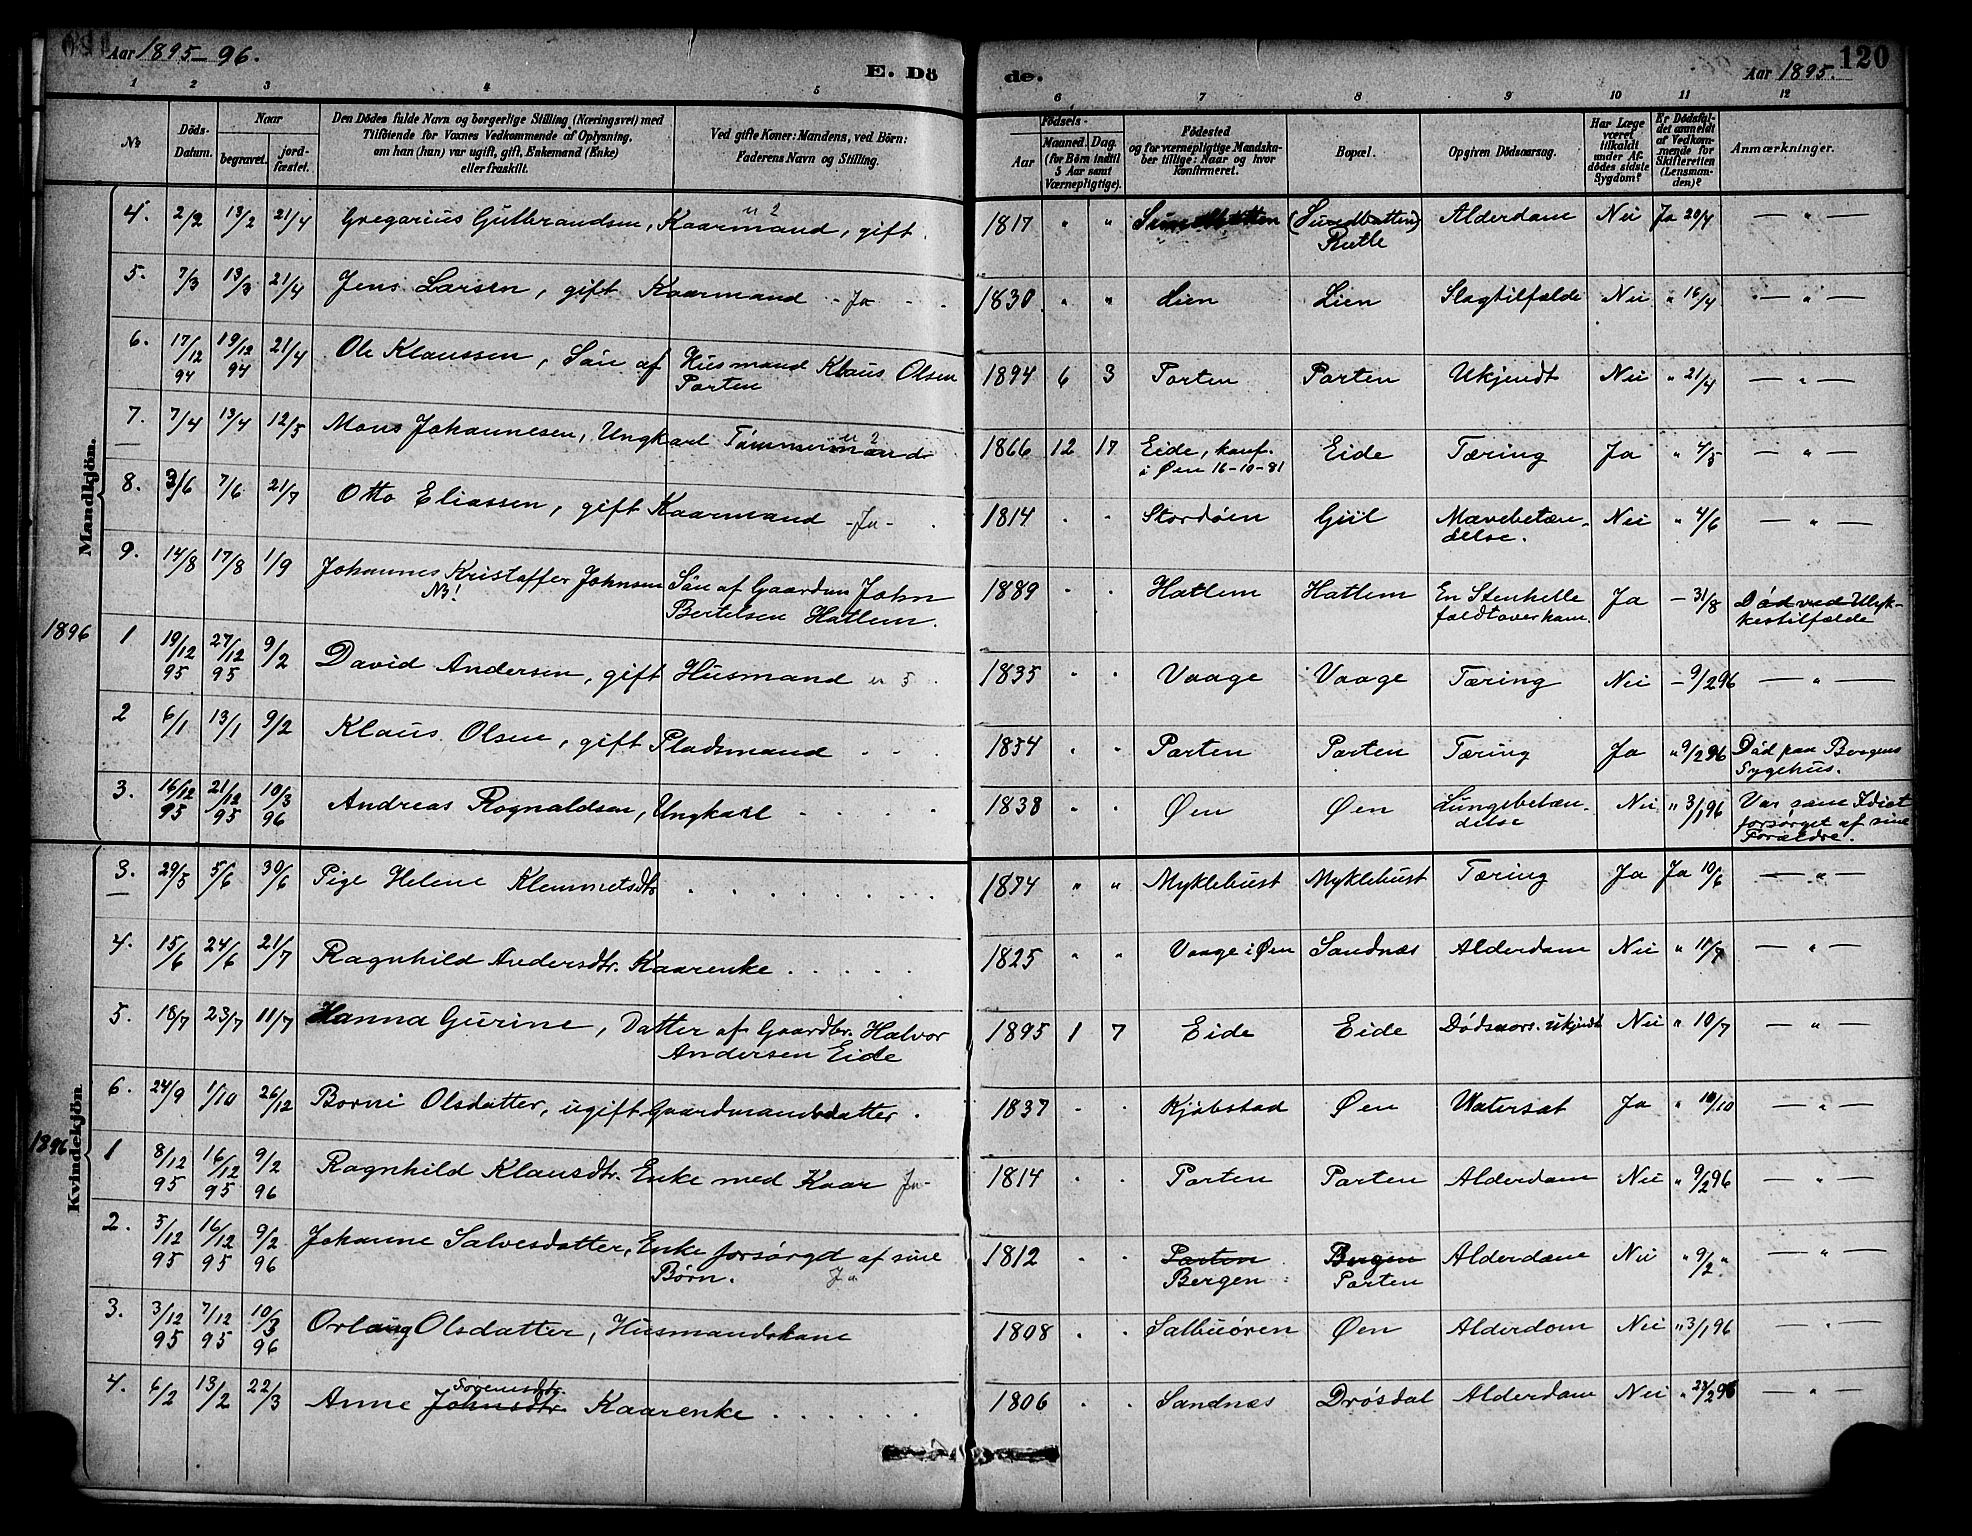 Aar 1895–96.
E. Dö
de.
Aar 1895.
120
1 2 3 4 5 6 7 8 9 10 11 12
№
Döds-Datum.
Naar
begravet.
jord-fæstet.
Den Dödes fulde Navn og borgerlige Stilling (Næringsvei) med
Tilföiende for Voxnes Vedkommende af Oplysning,
om han (hun) var ugift, gift, Enkemand (Enke)
eller fraskilt.
Ved gifte Koner: Mandens, ved Börn:
Faderens Navn og Stilling.
Födsels-
Aar
Maaned. Dag.
(for Börn indtil
5 Aar samt
Værnepligtige).
Födested
og for værnepligtige Mandska-
ber tillige: Naar og hvor
konfirmeret.
Bopæl.
Opgiven Dödsaarsag.
Har Læge
været
tilkaldt
under Af-
dödes sidste
Sygdom?
Er Dödsfal-
det anmeldt
af Vedkom-
mende for
Skifteretten
(Lensman-
den)?
Anmærkninger.
Mandkjön.
4. 2/2 13/2 21/4 Gregarius Gulbrandsen, Kaarmand, gift. 1817 " " (Sundbotten) Rutle Alderdom Nei Ja 20/4 — " —
5. 7/3 13/3 21/4 Jens Larsen, gift Kaarmand - Ja - 1830 " " Lien Lien Slagtilfælde Nei " 16/4 — " —
6. 17/12 94 19/12 94 21/4 Ole Klaussen, Sön af Husmand Klaus Olsen
Parten 1894 6 3 Parten Parten Ukjendt Nei " 21/4 — " —
7. 7/4 13/4 12/5 Mons Johannesen, Ungkarl Tömmermand 1866 12 17 Eide, konf.
i Øen 16-10-81 Eide Tæring Ja " 4/5 — " —
8. 3/6 7/6 21/7 Otto Eliassen, gift Kaarmand - Ja - 1814 . . Stordöen Giil Mavebetæn-
delse. Nei " 4/6 — " —
9. 14/8 17/8 1/9 Johannes Kristoffer Johnsen Sön af Gaardm John
NB! Bertelsen Hatlem. 1889 . . Hatlem Hatlem En Stenhelle
faldt over ham. Ja — 31/8 Död ved Ulyk-
kestilfælde
1896
1 19/12 95 27/12 95 9/2 David Andersen, gift Husmand 1835 . . Vaage Vaage Tæring Nei — 9/2 96 — " —
2 6/1 13/1 9/2 Klaus Olsen, gift Pladsmand 1854 " . Parten Parten Tæring Ja " 9/2 96 Död paa Bergens
Sygehus.
3. 16/12 95 21/12 95 10/3 96 Andreas Rognaldsen, Ungkarl 1838 " . Øen Øen Lungebetæn-
delse Nei " 3/1 96 Var Idiot
forsörget af sine
Forældre.
Kvindekjön
3. 29/5 5/6 30/6 Pige Helene Klemmetsdtr 1874 " " Myklebust Myklebust Tæring Ja Ja 10/6 — " —
4. 15/6 24/6 21/7 Ragnhild Andersdtr. Kaarenke 1825 " " Vaage i Øen Sandnæs Alderdom Nei " 10/7 — " —
5. 18/7 23/7 11/7 Hanna Gurine, Datter af Gaardbr. Halvor
Andersen Eide 1895 1 7 Eide Eide Dödsaars. ukjendt Nei " 10/7 — " —
6. 24/9 1/10 26/12 Borni Olsdatter, ugift Gaardmandsdatter. 1837 . . Kjöbstad Øen Vatersot Ja " 10/10 — " —
1896
1 8/12 95 16/12 95 9/2 96 Ragnhild Klausdtr. Enke med Kaar Ja- 1814 . . Parten Parten Alderdom Nei " 9/2 96 — " —
2. 5/12 95 16/12 95 9/2 96 Johanne Salvesdatter, Enke forsörgd af sine
Börn. Ja 1812 . . Parten
Bergen Bergen
Parten Alderdom Nei " 9/2 " — " —
3. 3/12 95 7/12 95 10/3 96 Orlaug Olsdatter, Husmandskone 1808 . . Salbuören Øen Alderdom Nei " 3/1 96 — " —
4. 6/2 13/2 22/3 Anne Johnsdtr. Sörensdtr. Kaarenke 1806 . . Sandnæs Drösdal Alderdom Nei " 22/2 96 — " —